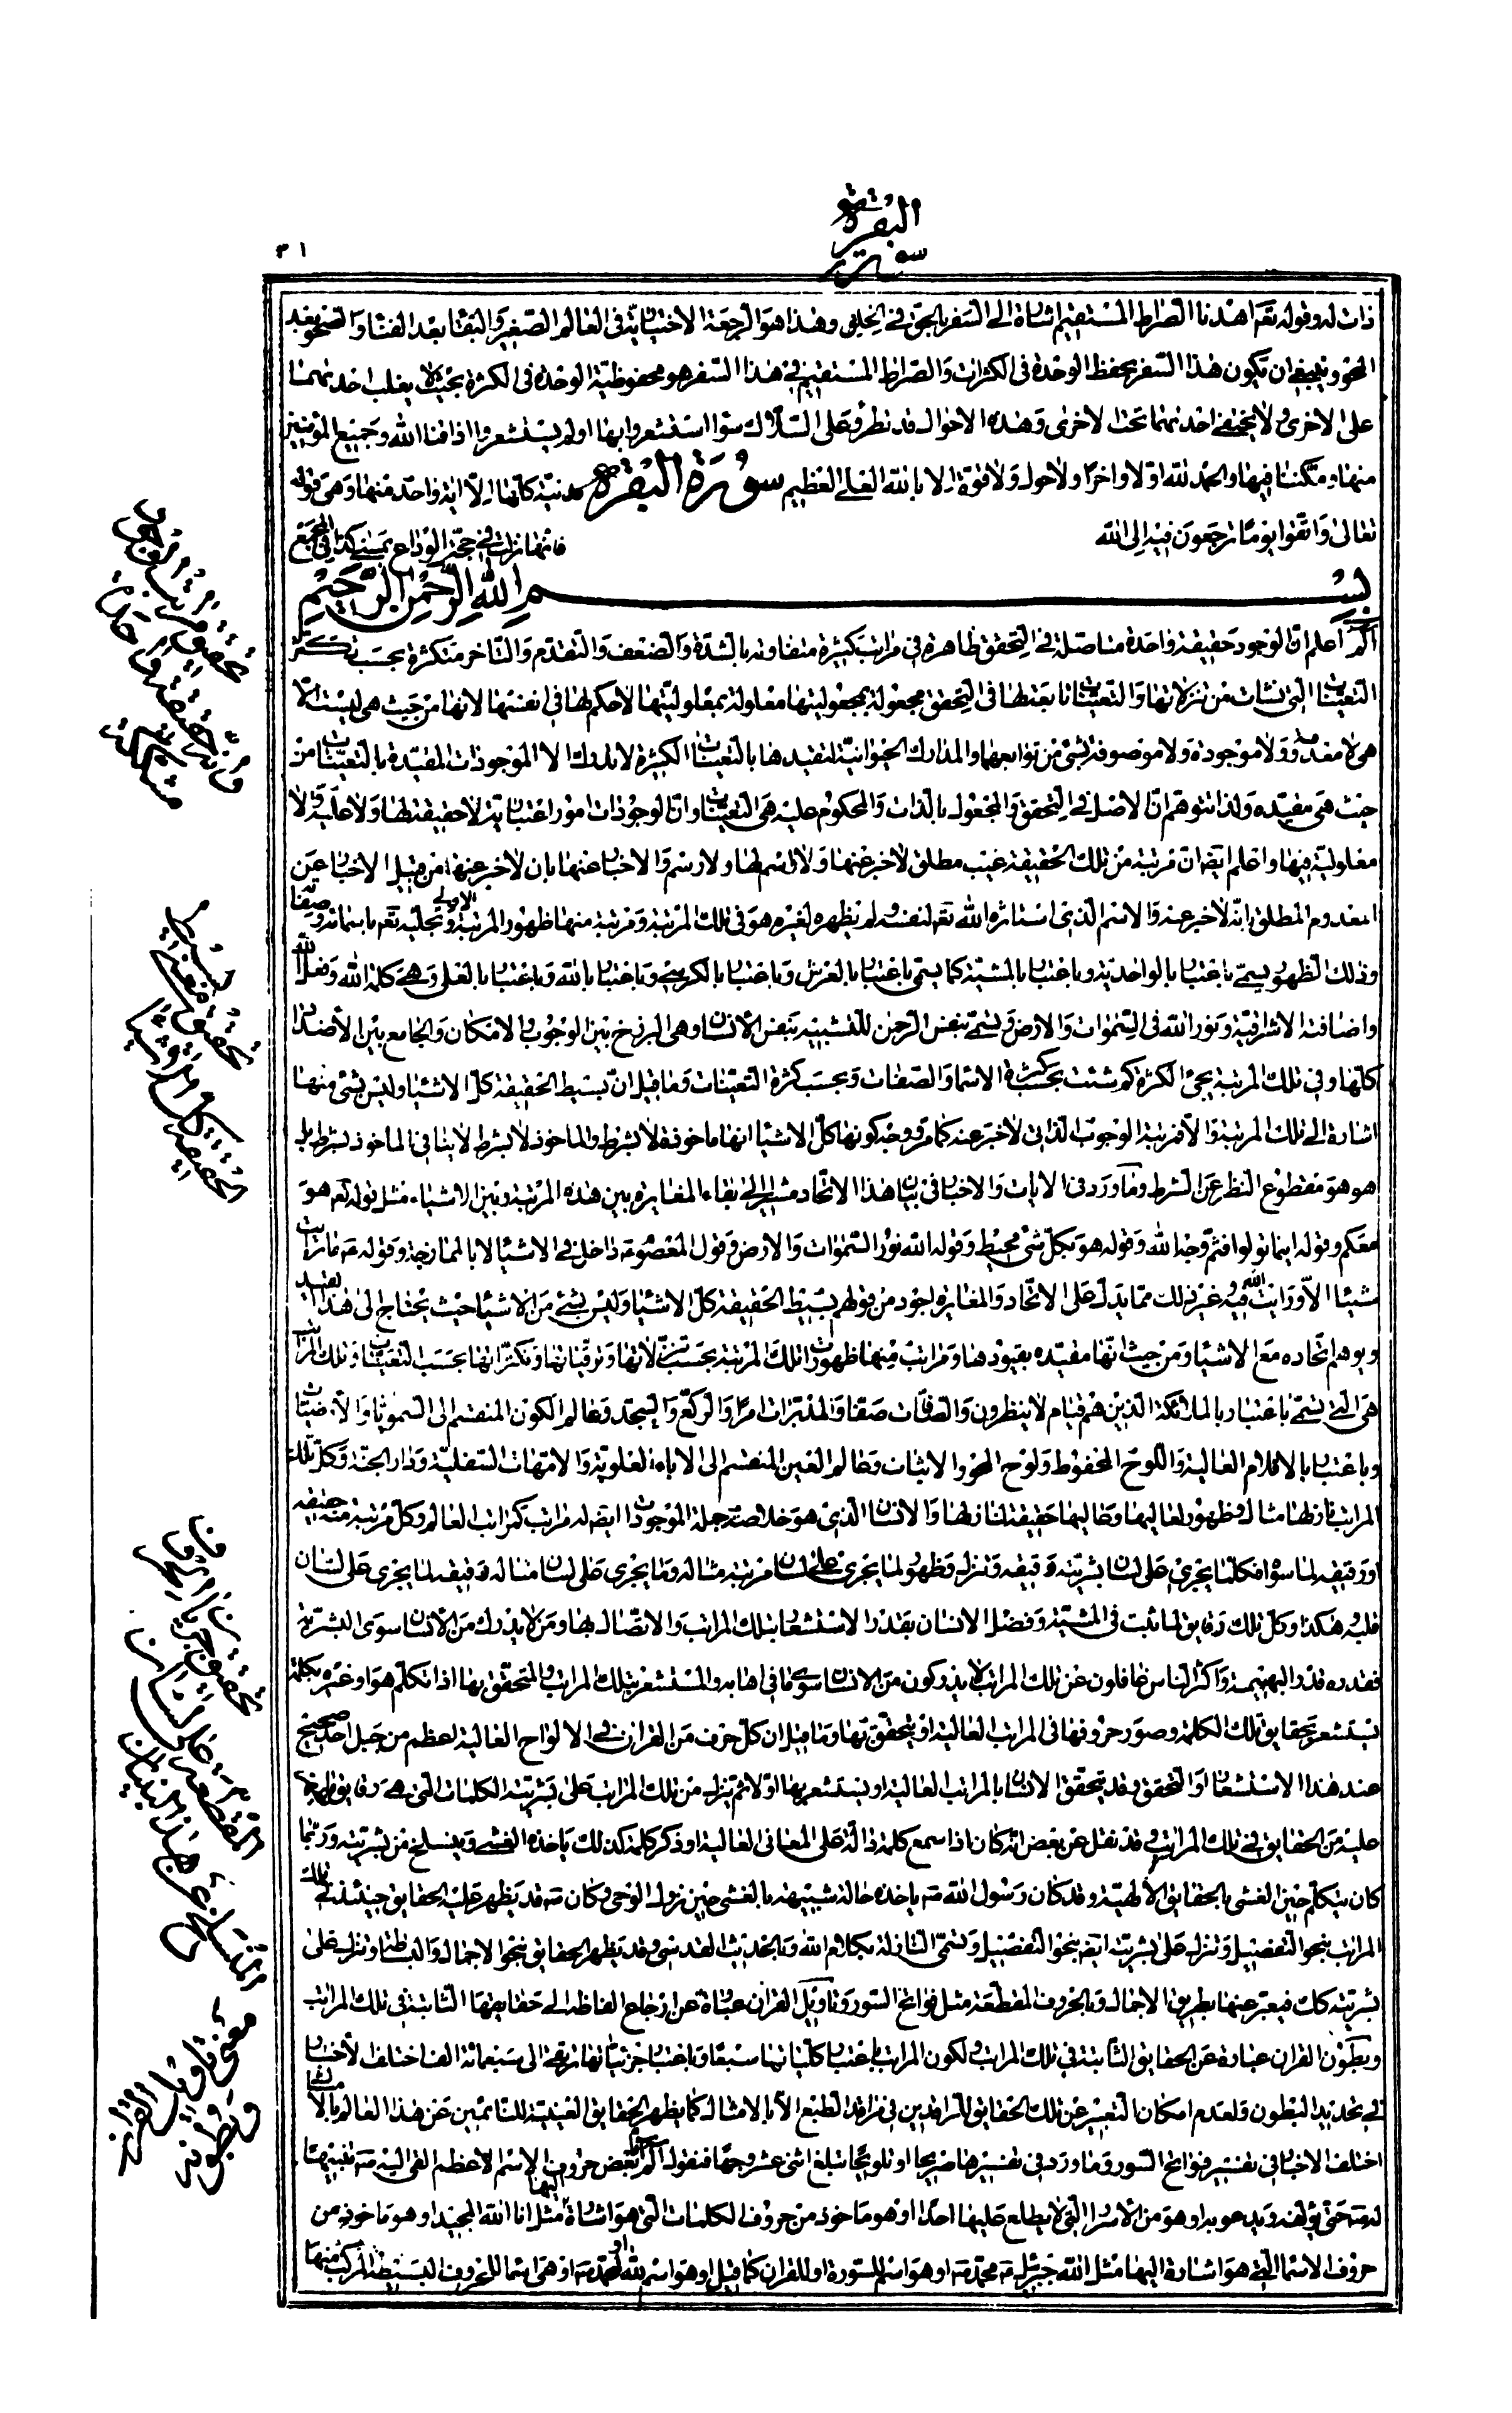 سورة البقرة
٣١
ذات له وقوله تعم اهدنا الصراط المستقيم اشارة الى السفر بالحق فى الخلق وهذا هو الرجعة الاختيارية فى العالم الصغير والبقاء بعد الفناء والصحو بعد
المحو وينبغى ان يكون هذا السفر بحفظ الوحدة فى الكثرات والصراط المستقيم فى هذا السفر هو محفوظية الوحدة فى الكثرة بحيث لا يغلب احديهما
على الاخرى ولا يختفى احديهما تحت الاخرى وهذه الاحوال قد تطرؤ على السلاك سواء استشعروا بها او لم يستشعروا اذاقنا الله وجميع المؤمنين
منها ومكننا فيها والحمد لله اولا واخرا ولا حول ولا قوة الا بالله العلى العظيم سورة البقرة مدنية كلها الا اية واحدة منها وهى قوله
تعالى واتقوا يوما ترجعون فيه الى الله فانها نزلت فى حجة الوداع بمنى كذا فى المجمع
بسم الله الرحمن الرحيم
الم اعلم ان الوجود حقيقة واحدة متاصلة فى التحقق ظاهرة فى مراتب كثيرة متفاوتة بالشدة والضعف والتقدم والتاخر متكثرة بحسب تكثر
التعينات التى نشات من تنزلاتها والتعينات تابعة لها فى التحقق مجعولة بمجعوليتها معلولة بمعلوليتها لا حكم لها فى انفسها لانها من حيث هى ليست الا
هى لا معدومة ولا موجودة ولا موصوفة بشئ من توابعهما والمدارك الحيوانية لتقيدها بالتعينات الكثيرة لا تدرك الا الموجودات المقيدة بالتعينات من
حيث هى مقيدة ولذا تتوهم ان الاصل فى التحقق والمجعول بالذات والمحكوم عليه هى التعينات وان الوجودات امور اعتبارية لا حقيقة لها ولا علية ولا
معلولية فيها واعلم ايضا ان مرتبة من تلك الحقيقة غيب مطلق لا خبر عنها ولا اسم لها ولا رسم والاخبار عنها بان لا خبر عنها من قبيل الاخبار عن
المعدوم المطلق بانه لا خبر عنه والاسم الذى استاثره الله تعم لنفسه ولم يظهره لغيره هو فى تلك المرتبة ومرتبة منها ظهور المرتبة الاولى وتجليه تعم باسمائه وصفاته
وذلك الظهور يسمى باعتبار بالواحدية وباعتبار بالمشية كما يسمى باعتبار بالعرش وباعتبار بالكرسى وباعتبار بالله وباعتبار بالعلى وهى كلمة الله وفعل الله
واضافته الاشراقية ونور الله فى السموات والارض وتسمى بنفس الرحمن للتشبيه بنفس الانسان وهى البرزخ بين الوجوب والامكان والجامع بين الاضداد
كلها وفى تلك المرتبة يجئ الكثرة كم شئت بحسب كثرة الاسماء والصفات وبحسب كثرة التعينات وما قيل ان بسيط الحقيقة كل الاشياء وليس بشئ منها
اشارة الى تلك المرتبة والا فمرتبة الوجوب الذاتى لا خبر عنه كما مر ووجه كونها كل الاشياء انها ماخوذة لا بشرط والماخوذ لا بشرط لا ينافى الماخوذ بشرط بل
هو هو مقطوع النظر عن الشرط وما ورد فى الايات والاخبار فى بيان هذا الاتحاد مشيرا الى بقاء المغايرة بين هذه المرتبة وبين الاشياء مثل قوله تعم هو
معكم وقوله اينما تولوا فثم وجه الله وقوله هو بكل شئ محيط وقوله الله نور السموات والارض وقول المعصوم ع داخل فى الاشياء لا بالممازجة وقوله ع ما رايت
شيئا الا ورايت الله فيه وغير ذلك مما يدل على الاتحاد والمغايرة اجود من قولهم بسيط الحقيقة كل الاشياء وليس بشئ من الاشياء حيث يحتاج الى هذا القيد
ويوهم اتحاده مع الاشياء ومن حيث انها مقيدة بقيودها ومراتب منها ظهورات تلك المرتبة بحسب تنزلاتها وترقياتها وتكثراتها بحسب التعينات وتلك المراتب
هى التى تسمى باعتبار بالملائكة الذين هم قيام لا ينظرون والصافات صفا والمدبرات امرا والركع والسجد وعالم الكون المنقسم الى السمويات والارضيات
وباعتبار بالاقلام العالية واللوح المحفوظ ولوح المحو والاثبات وعالم العين المنقسم الى الاباء العلوية والامهات السفلية ودار الجنة وكل تلك
المراتب دانيها مثال وظهور لعاليها وعاليها حقيقة لدانيها والانسان الذى هو خلاصة جملة الموجودات ايضا له مراتب كمراتب العالم وكل مرتبة منه حقيقة
او رقيقة لما سواه فكلما يجرى على لسان بشريته رقيقة وتنزل وظهور لما يجرى على لسان مرتبة مثاله وما يجرى على لسان مثاله رقيقة لما يجرى على لسان
قلبه هكذا وكل تلك رقايق لما ثبت فى المشية وفضل الانسان بقدر الاستشعار بتلك المراتب والاتصال بها ومن لا يدرك من الانسان سوى البشرية
فقدره قدر البهيمة واكثر الناس غافلون عن تلك المراتب لا يدركون من الانسان سوى ما فى اهابه والمستشعر بتلك المراتب والمتحقق بها اذا تكلم هو او غيره بكلمة
يستشعر بحقايق تلك الكلمة وصور حروفها فى المراتب العالية او يتحقق بها وما قيل ان كل حرف من القران فى الالواح العالية اعظم من جبل احد صحيح
عند هذا الاستشعار او التحقق وقد يتحقق الانسان بالمراتب العالية او يستشعر بها اولا ثم ينزل من تلك المراتب على بشريته الكلمات التى هى رقايق
عليه من الحقايق فى تلك المراتب وقد نقل عن بعض انه كان اذا سمع كلمة دالة على المعانى العالية او ذكر كلمة كذلك ياخذه الغشى وينسلخ من بشريته وربما
كان يتكلم حين الغشى بالحقايق الالهية وقد كان رسول الله ص ياخذه حالة شبيهة بالغشى حين نزول الوحى وكان ص قد يظهر عليه الحقايق حينئذ فى تلك
المراتب بنحو التفصيل وتنزل على بشريته ايضا بنحو التفصيل وتسمى النازلة بكلام الله وبالحديث القدسى وقد يظهر الحقايق بنحو الاجمال والبساطة وتنزل على
بشريته كذلك فيعبر عنها بطريق الاجمال وبالحروف المقطعة مثل فواتح السور وتاويل القران عبارة عن ارجاع الفاظه الى حقايقها الثابتة فى تلك المراتب
وبطون القران عبارة عن الحقايق الثابتة فى تلك المراتب ولكون المراتب باعتبار كلياتها سبعا وباعتبار جزئياتها ترتقى الى سبعمائة الف اختلف الاخبار
فى تحديد البطون ولعدم امكان التعبير عن تلك الحقايق للراقدين فى مراقد الطبع الا بالامثال كما يظهر الحقايق الغيبية للنائمين عن هذا العالم بالامثال
اختلف الاخبار فى تفسير فواتح السور وما ورد فى تفسيرها صريحا او تلويحا تبلغ اثنى عشر وجها فنقول الم بعض حروف الاسم الاعظم القى اليه ص تنبيها
له ص حتى يؤلفه ويدعو به او هو من الاسرار التى لا يطلع عليها احدا او هو ماخوذ من حروف الكلمات التى هو اشارة اليها مثل انا الله المجيد او هو ماخوذ من
حروف الاسماء التى هو اشارة اليها مثل الله جبرئيل ع محمد ص او هو اسم للسورة او للقران كما قيل او هو اسم لله او لمحمد ص او هى اسماء للحروف البسيطة المركب منها
تحقيق مراتب الوجود
وانه حقيقة واحدة
مشككة
تحقيق معنى بسيط
الحقيقة كل الاشياء
تحقيق جريان الحروف
المقطعة على لسان
المنسلخ عن هذا البنيان
معنى تاويل القران
وبطونه